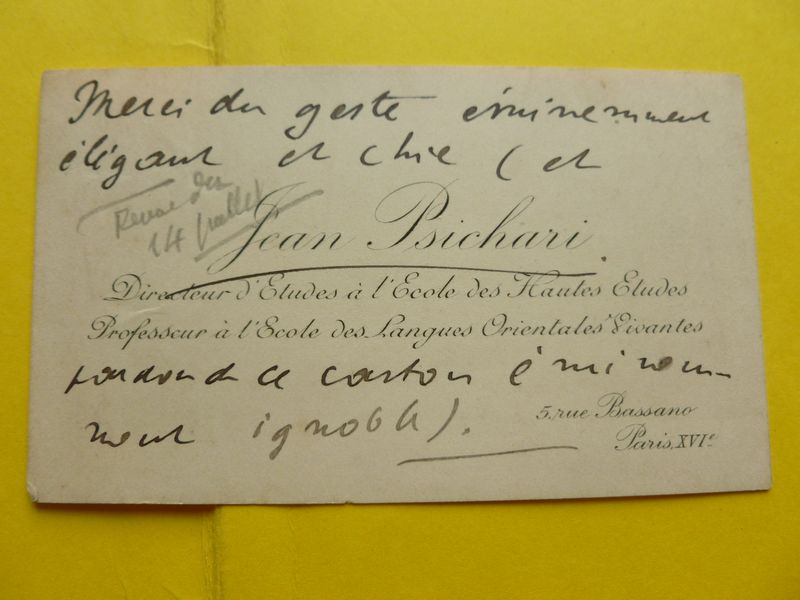 Merci du geste éminemment
élégant et chic (et
Revue du
14 juillet
Jean Psichari
Directeur d'Etudes à l'Ecole des Hautes Etudes
Professeur à l'Ecole des Langues Orientales Vivantes
pardon de ce carton éminem-
ment ignoble).
5, rue Bassano
Paris, XVIe